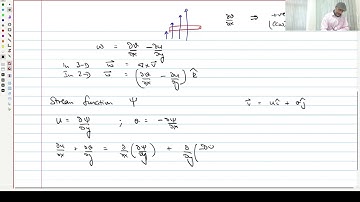 ∂v/∂x ⇒ +ve
(ccw)
ω = ∂v/∂x - ∂u/∂y
In 3-D ω⃗ = ∇×v⃗
In 2-D ω⃗ = (∂v/∂x - ∂u/∂y) k̂
Stream function ψ v⃗ = uî + vĵ
u = ∂ψ/∂y ; v = -∂ψ/∂x
∂u/∂x + ∂v/∂y = ∂/∂x (∂ψ/∂y) + ∂/∂y (